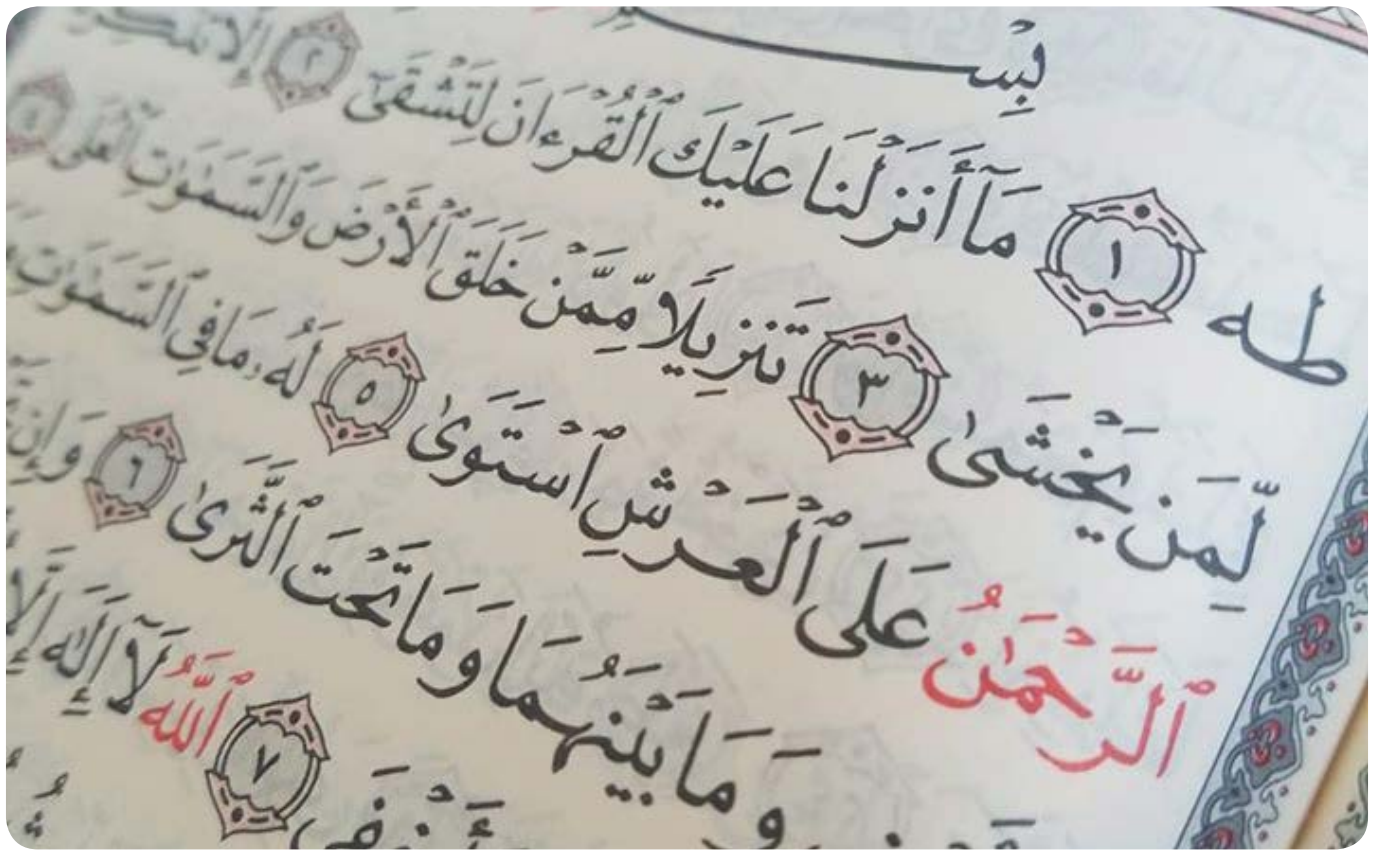 بِسْ
طه ١ مَآ أَنزَلْنَا عَلَيْكَ ٱلْقُرْءَانَ لِتَشْقَىٰٓ ٢ إِلَّا
لِّمَن يَخْشَىٰ ٣ تَنزِيلًا مِّمَّنْ خَلَقَ ٱلْأَرْضَ وَٱلسَّمَٰوَٰتِ ٱلْعُلَى ٤
ٱلرَّحْمَٰنُ عَلَى ٱلْعَرْشِ ٱسْتَوَىٰ ٥ لَهُۥ مَا فِى ٱلسَّمَٰوَٰتِ
وَمَا بَيْنَهُمَا وَمَا تَحْتَ ٱلثَّرَىٰ ٦ وَإِن
٧ ٱللَّهُ لَآ إِلَٰهَ إِلَّا